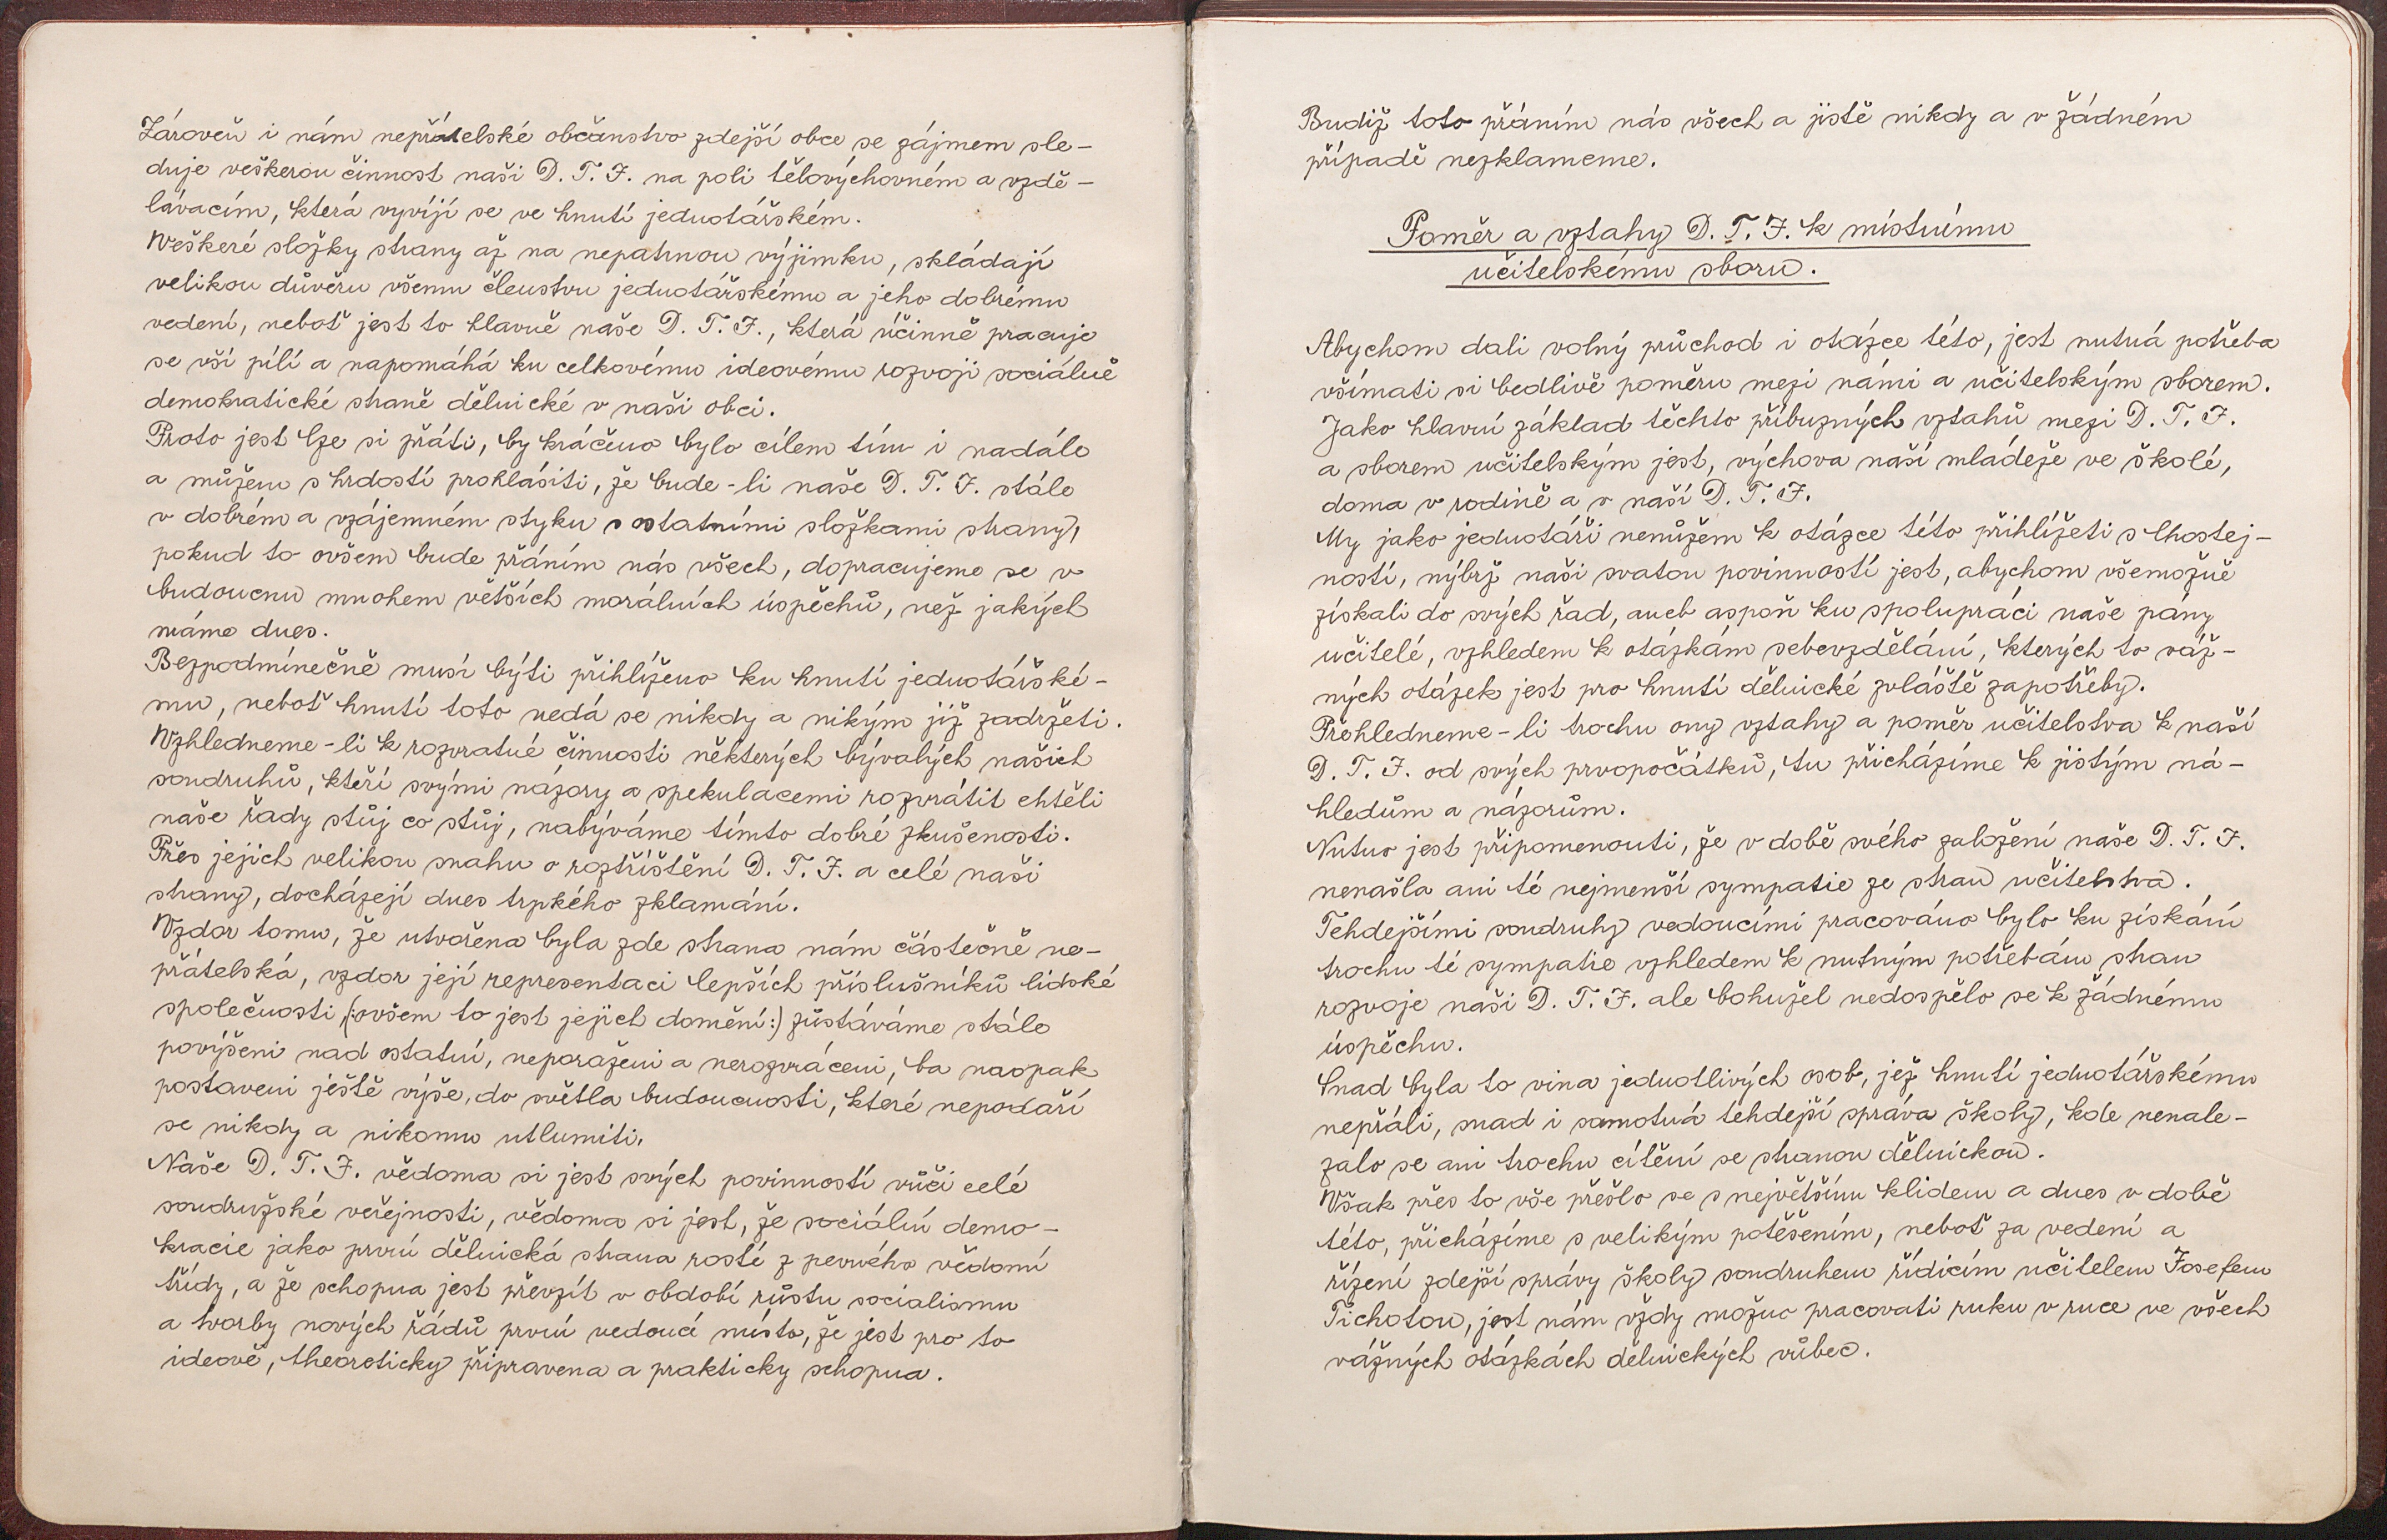 Zároveň i nám nepřátelské občanstvo zdejší obce se zájmem sle-
duje veškerou činnost naši D. T. J. na poli tělovýchovném a vzdě-
lávacím, která vyvíjí se ve hnutí jednotářském.
Veškeré složky strany až na nepatrnou výjimku, skládají
velikou důvěru všemu členstvu jednotářskému a jeho dobrému
vedení, neboť jest to hlavně naše D. T. J., která účinně pracuje
se vší pílí a napomáhá ku celkovému ideovému rozvoji sociálně
demokratické straně dělnické v naši obci.
Proto jest lze si přáti, by kráčeno bylo cílem tím i nadále
a můžem s hrdostí prohlásiti, že bude-li naše D. T. J. stále
v dobrém a vzájemném styku s ostatními složkami strany,
pokud to ovšem bude přáním nás všech, dopracujeme se v
budoucnu mnohem větších morálních úspěchů, než jakých
máme dnes.
Bezpodmínečně musí býti přihlíženo ku hnutí jednotářské-
mu, neboť hnutí toto nedá se nikdy a nikým již zadržeti.
Vzhledneme-li k rozvratné činnosti některých bývalých našich
soudruhů, kteří svými názory a spekulacemi rozvrátit chtěli
naše řady stůj co stůj, nabýváme tímto dobré zkušenosti.
Přes jejich velikou snahu o roztříštění D. T. J. a celé naši
strany, docházejí dnes trpkého zklamání.
Vzdor tomu, že utvořena byla zde strana nám částečně ne-
přátelská, vzdor její representaci lepších příslušníků lidské
společnosti (:ovšem to jest jejich domění:) zůstáváme stále
povýšeni nad ostatní, neporaženi a nerozvráceni, ba naopak
postaveni ještě výše, do světla budoucnosti, které nepodaří
se nikdy a nikomu utlumiti.
Naše D. T. J. vědoma si jest svých povinností vůči celé
soudružské veřejnosti, vědoma si jest, že sociální demo-
kracie jako první dělnická strana rosté z pevného vědomí
třídy, a že schopna jest převzít v období růstu socialismu
a tvorby nových řádů první vedoucí místo, že jest pro to
ideově, theoreticky připravena a prakticky schopna.
Budiž toto přáním nás všech a jistě nikdy a v žádném
případě nezklameme.
Poměr a vztahy D. T. J. k místnímu
učitelskému sboru.
Abychom dali volný průchod i otázce této, jest nutná potřeba
všímati si bedlivě poměru mezi námi a učitelským sborem.
Jako hlavní základ těchto příbuzných vztahů mezi D. T. J.
a sborem učitelským jest, výchova naší mládeže ve škole,
doma v rodině a v naší D. T. J.
My jako jednotáři nemůžem k otázce této přihlížeti s lhostej-
ností, nýbrž naši svatou povinností jest, abychom všemožně
získali do svých řad, aneb aspoň ku spolupráci naše pány
učitelé, vzhledem k otázkám sebevzdělání, kterých to váž-
ných otázek jest pro hnutí dělnické zvláště zapotřeby.
Přehledneme-li trochu ony vztahy a poměr učitelstva k naší
D. T. J. od svých prvopočátků, tu přicházíme k jistým ná-
hledům a názorům.
Nutno jest připomenouti, že v době svého založení naše D. T. J.
nenašla ani té nejmenší sympatie ze stran učitelstva.
Tehdejšími soudruhy vedoucími pracováno bylo ku získání
trochu té sympatie vzhledem k nutným potřebám stran
rozvoje naši D. T. J. ale bohužel nedospělo se k žádnému
úspěchu.
Snad byla to vina jednotlivých osob, jež hnutí jednotářskému
nepřáli, snad i samotná tehdejší správa školy, kde nenale-
zalo se ani trochu cítění se stranou dělnickou.
Však přes to vše přešlo se s největším klidem a dnes v době
této, přicházíme s velikým potěšením, neboť za vedení a
řízení zdejší správy školy soudruhem řídicím učitelem Josefem
Tichotou, jest nám vždy možno pracovati ruku v ruce ve všech
vážných otázkách dělnických vůbec.